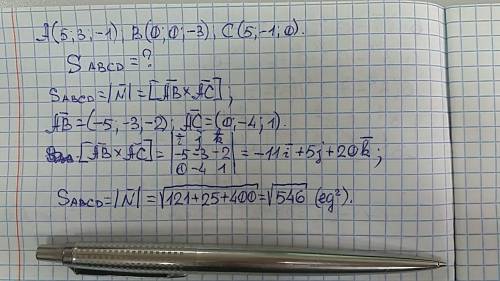 A(5; 3; -1); B(0; 0; -3); C(5; -1; 0).
S ABCD = ?
S ABCD = |N̅| = [A̅B̅ × A̅C̅];
A̅B̅ = (-5, -3, -2); A̅C̅ = (0; -4; 1).
[A̅B̅ × A̅C̅] = | i̅ j̅ k̅ |
| -5 -3 -2 | = -11i̅ + 5j̅ + 20k̅;
| 0 -4 1 |
S ABCD = |N̅| = √121+25+400 = √546 (eg²).